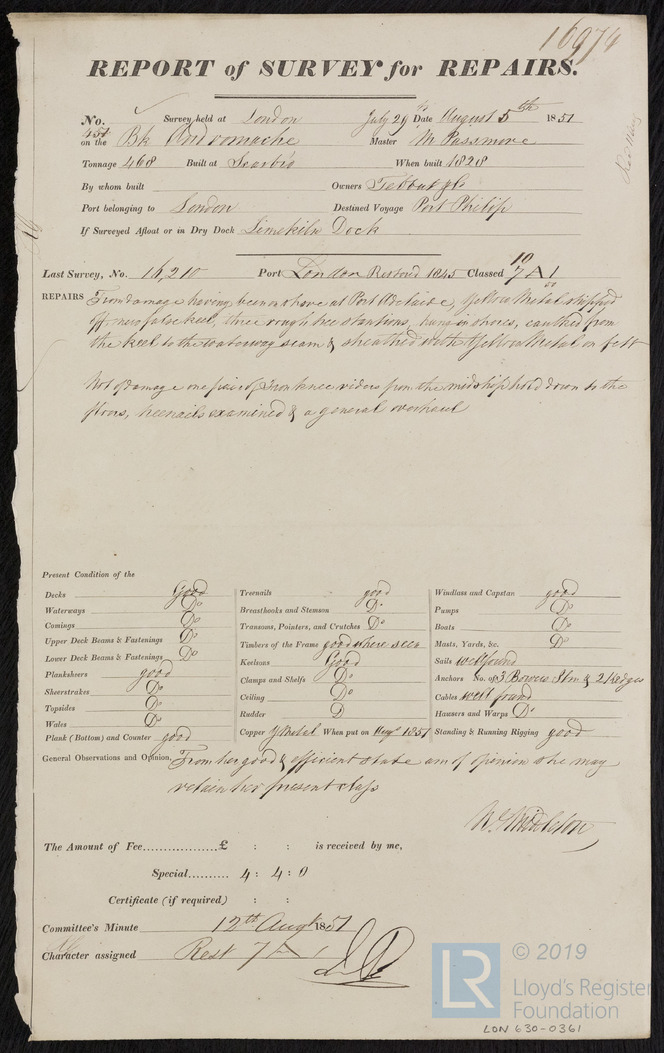 16974
REPORT of SURVEY for REPAIRS.
No. Survey held at London July 29th Date August 5th 1851
451 on the Bk Andromache Master M Passmore
Tonnage 468 Built at Scarbro When built 1828
By whom built Owners Tebbut & Co
Port belonging to London Destined Voyage Port Philip
If Surveyed Afloat or in Dry Dock Limekiln Dock
Last Survey, No. 16,210 Port London Restored 1845 Classed 10 7 A 1
REPAIRS From damage having been on shore at Port Adelaide, Yellow Metal stripped
off, new false keel, three rough tree stantions, hawsin shores, caulked from
the keel to the waterway seam & sheathed with Yellow Metal on felt
Not of damage one pair of Iron knee riders from the midship hold down to the
floors, treenails examined & a general overhaul
Present Condition of the
Decks good
Waterways Do
Comings Do
Upper Deck Beams & Fastenings Do
Lower Deck Beams & Fastenings Do
Planksheers good
Sheerstrakes Do
Topsides Do
Wales Do
Plank (Bottom) and Counter good
Treenails good
Breasthooks and Stemson Do
Transoms, Pointers, and Crutches Do
Timbers of the Frame good where seen
Keelsons Good
Clamps and Shelfs Do
Ceiling Do
Rudder D
Copper Y Metal When put on Augt 1851
Windlass and Capstan good
Pumps Do
Boats Do
Masts, Yards, &c. Do
Sails well found
Anchors No. of 3 Bowers Stm & 2 Kedges
Cables well found
Hausers and Warps Do
Standing & Running Rigging good
General Observations and Opinion, From her good & efficient state am of opinion she may
retain her present class
W Middleton
The Amount of Fee £ : : is received by me,
Special 4 : 4 : 0
Certificate (if required) : :
Committee's Minute 12th Augt 1851
Character assigned Rest 7 A 1
LR
© 2019
Lloyd's Register
Foundation
LON 630-0361